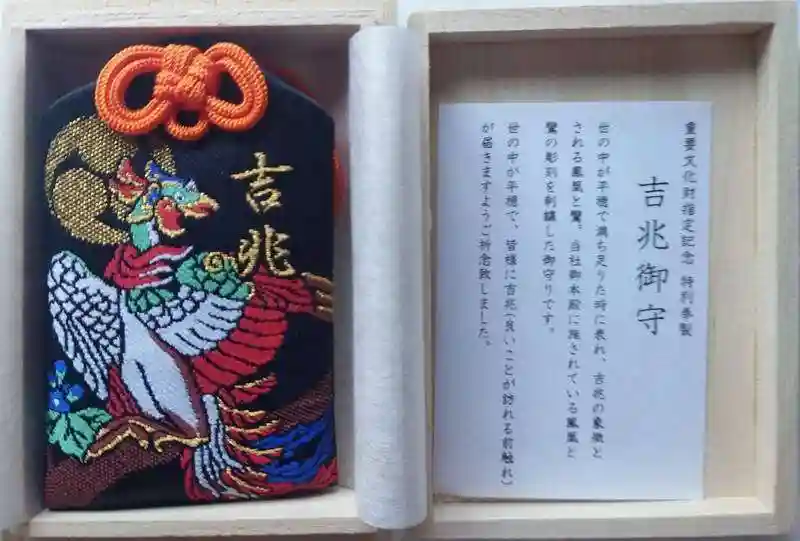 吉兆
重要文化財指定記念 特別奉製
吉兆御守
世の中が平穏で満ち足りた時に表れ、吉兆の象徴と
される鳳凰と鸞。当社御本殿に施されている鳳凰と
鸞の彫刻を刺繍した御守りです。
世の中が平穏で、皆様に吉兆(良いことが訪れる前触れ)
が届きますようご祈念致しました。